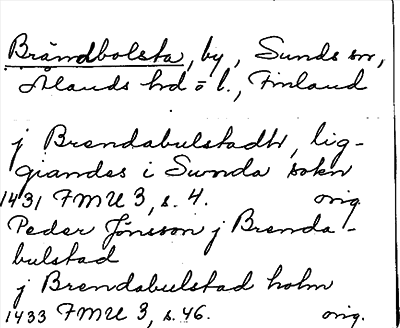 Brändbolsta, by, Sunds sn,
Ålands hd o l., Finland
j Brendabulstadh, lig-
giandes i Swnda sokn
1431 FMU 3, s. 4. orig.
Peder Jönsson j Brenda-
bulstad
j Brendabulstad holm
1433 FMU 3, s. 46. orig.